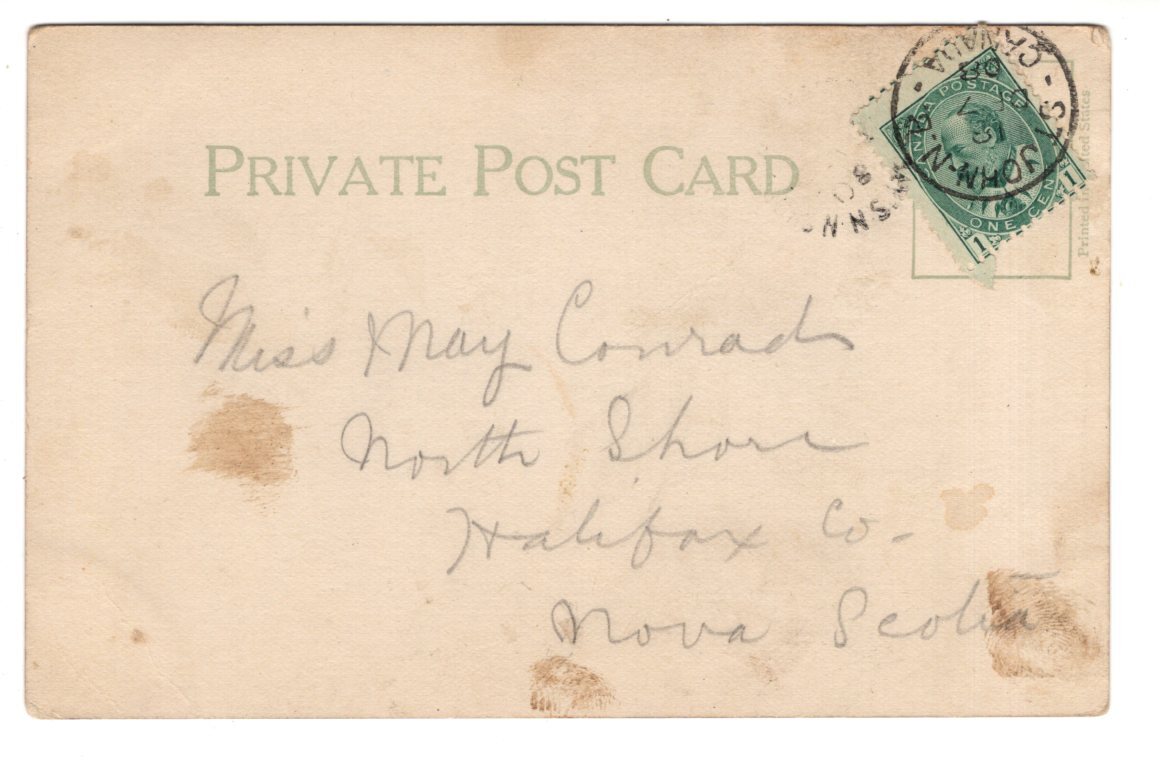 PRIVATE POST CARD
CANADA POSTAGE
ONE CENT
1 1
ST JOHN N.B.
CANADA
Printed in United States
Miss May Conrad
North Shore
Halifax Co-
Nova Scotia